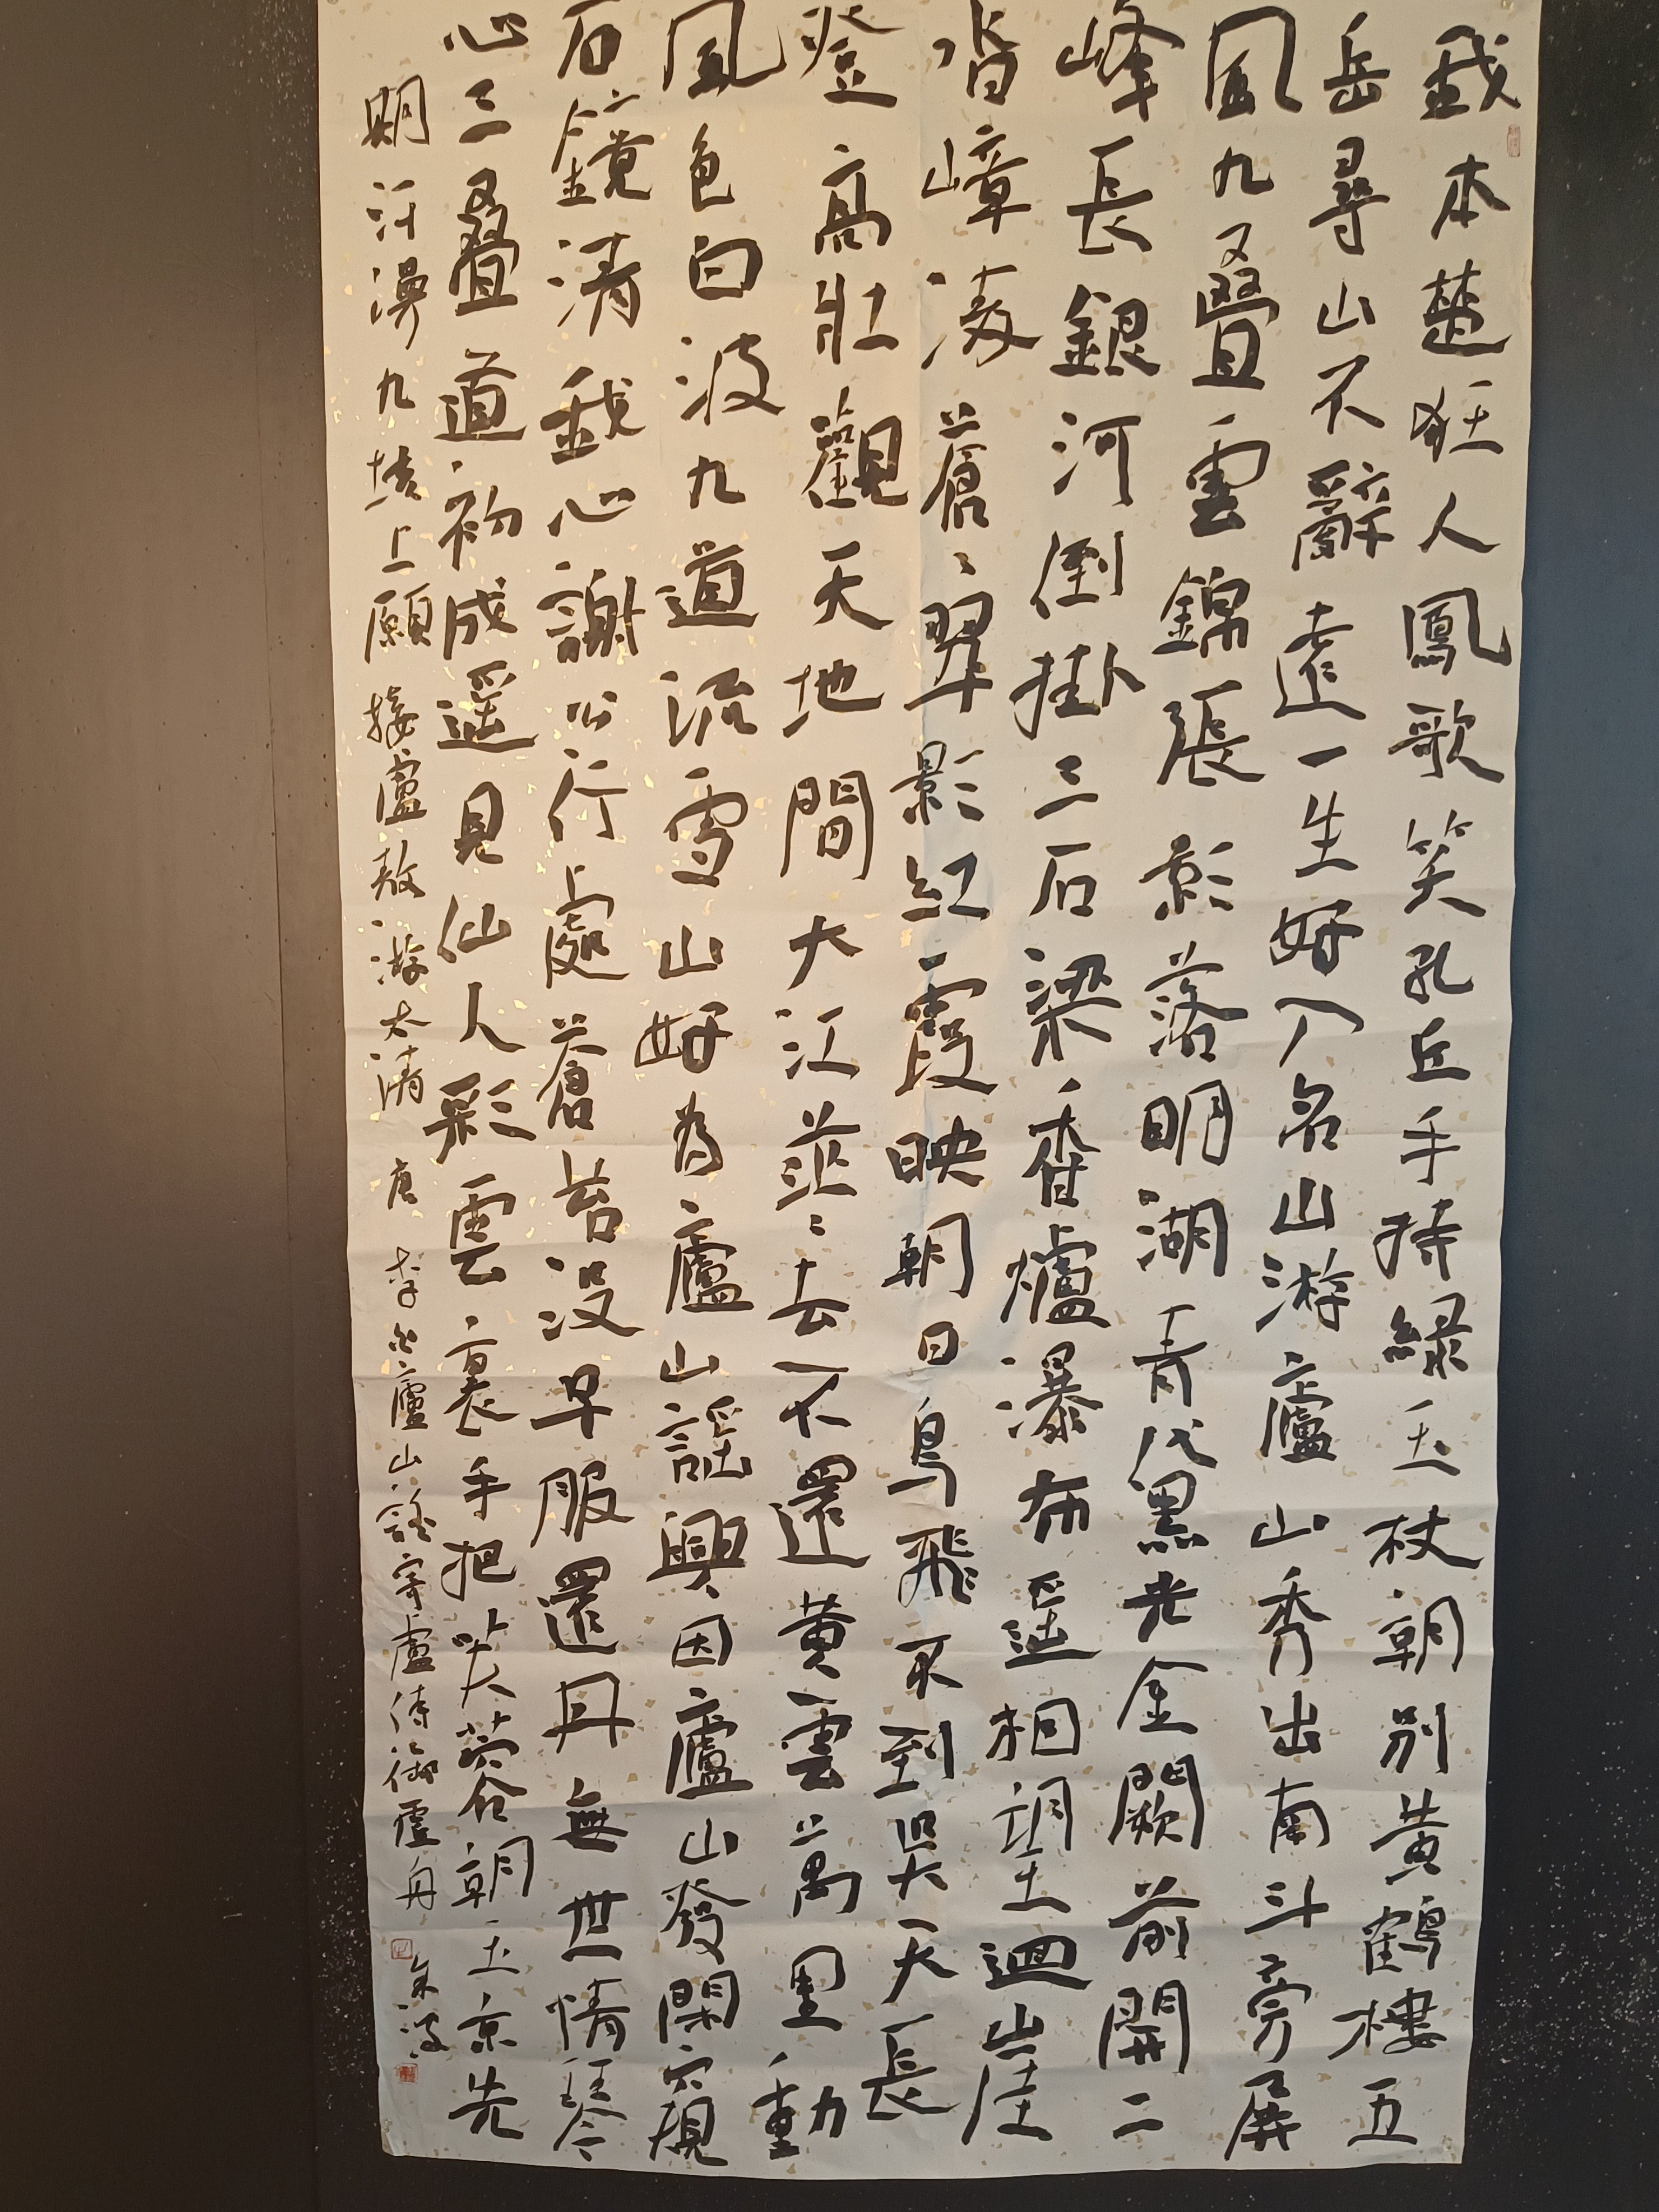 我本楚狂人鳳歌笑孔丘手持綠玉杖朝別黃鶴樓五
岳尋山不辭遠一生好入名山游廬山秀出南斗旁屏
風九疊雲錦張影落明湖青黛光金闕前開二
峰長銀河倒掛三石梁香爐瀑布遥相望迴崖
沓嶂凌蒼〻翠影紅霞映朝日鳥飛不到吳天長
登高壯觀天地間大江茫〻去不還黃雲萬里動
風色白波九道流雪山好為廬山謠興因廬山發閑窺
石鏡清我心謝公行處蒼苔沒早服還丹無世情琴
心三疊道初成遥見仙人彩雲裏手把芙蓉朝玉京先
期汗漫九垓上願接盧敖游太清 唐 李白廬山謠寄盧侍御虛舟